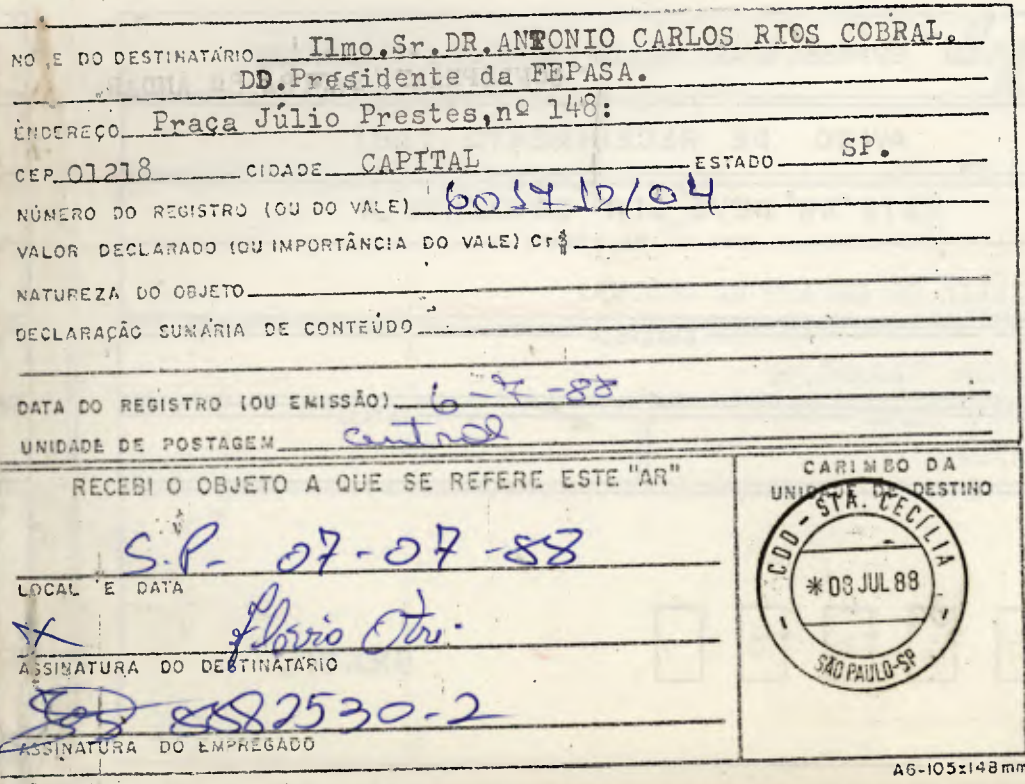 NO E DO DESTINATÁRIO Ilmo.Sr.DR.ANTONIO CARLOS RIOS COBRAL.
DD.Presidente da FEPASA.
ENDEREÇO Praça Júlio Prestes,nº 148:
CEP 01218 CIDADE CAPITAL ESTADO SP.
NÚMERO DO REGISTRO (OU DO VALE) 601712/04
VALOR DECLARADO (OU IMPORTÂNCIA DO VALE) Cr$
NATUREZA DO OBJETO
DECLARAÇÃO SUMÁRIA DE CONTEÚDO
DATA DO REGISTRO (OU EMISSÃO) 6-7-88
UNIDADE DE POSTAGEM central
RECEBI O OBJETO A QUE SE REFERE ESTE "AR"
S.P- 07-07-88
LOCAL E DATA
X Flávio
ASSINATURA DO DESTINATÁRIO
8882530-2
ASSINATURA DO EMPREGADO
CARIMBO DA
UNIDADE DE DESTINO
CDD - STA. CECÍLIA -
*08 JUL 88
SÃO PAULO-SP
A6-105x148mm